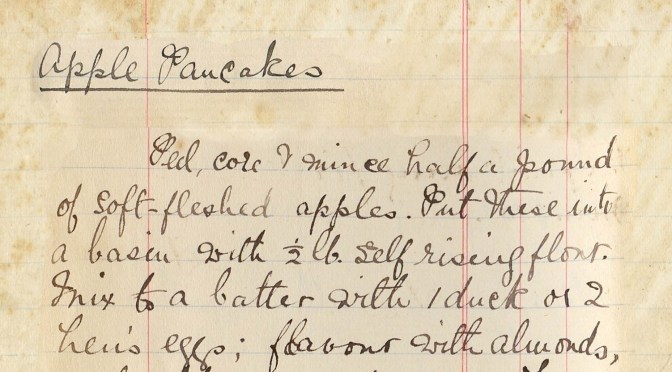 Apple Pancakes
Peel, core & mince half a pound
of soft-fleshed apples. Put these into
a basin with ½ lb. self rising flour.
Mix to a batter with 1 duck or 2
hen's eggs; flavour with almonds,